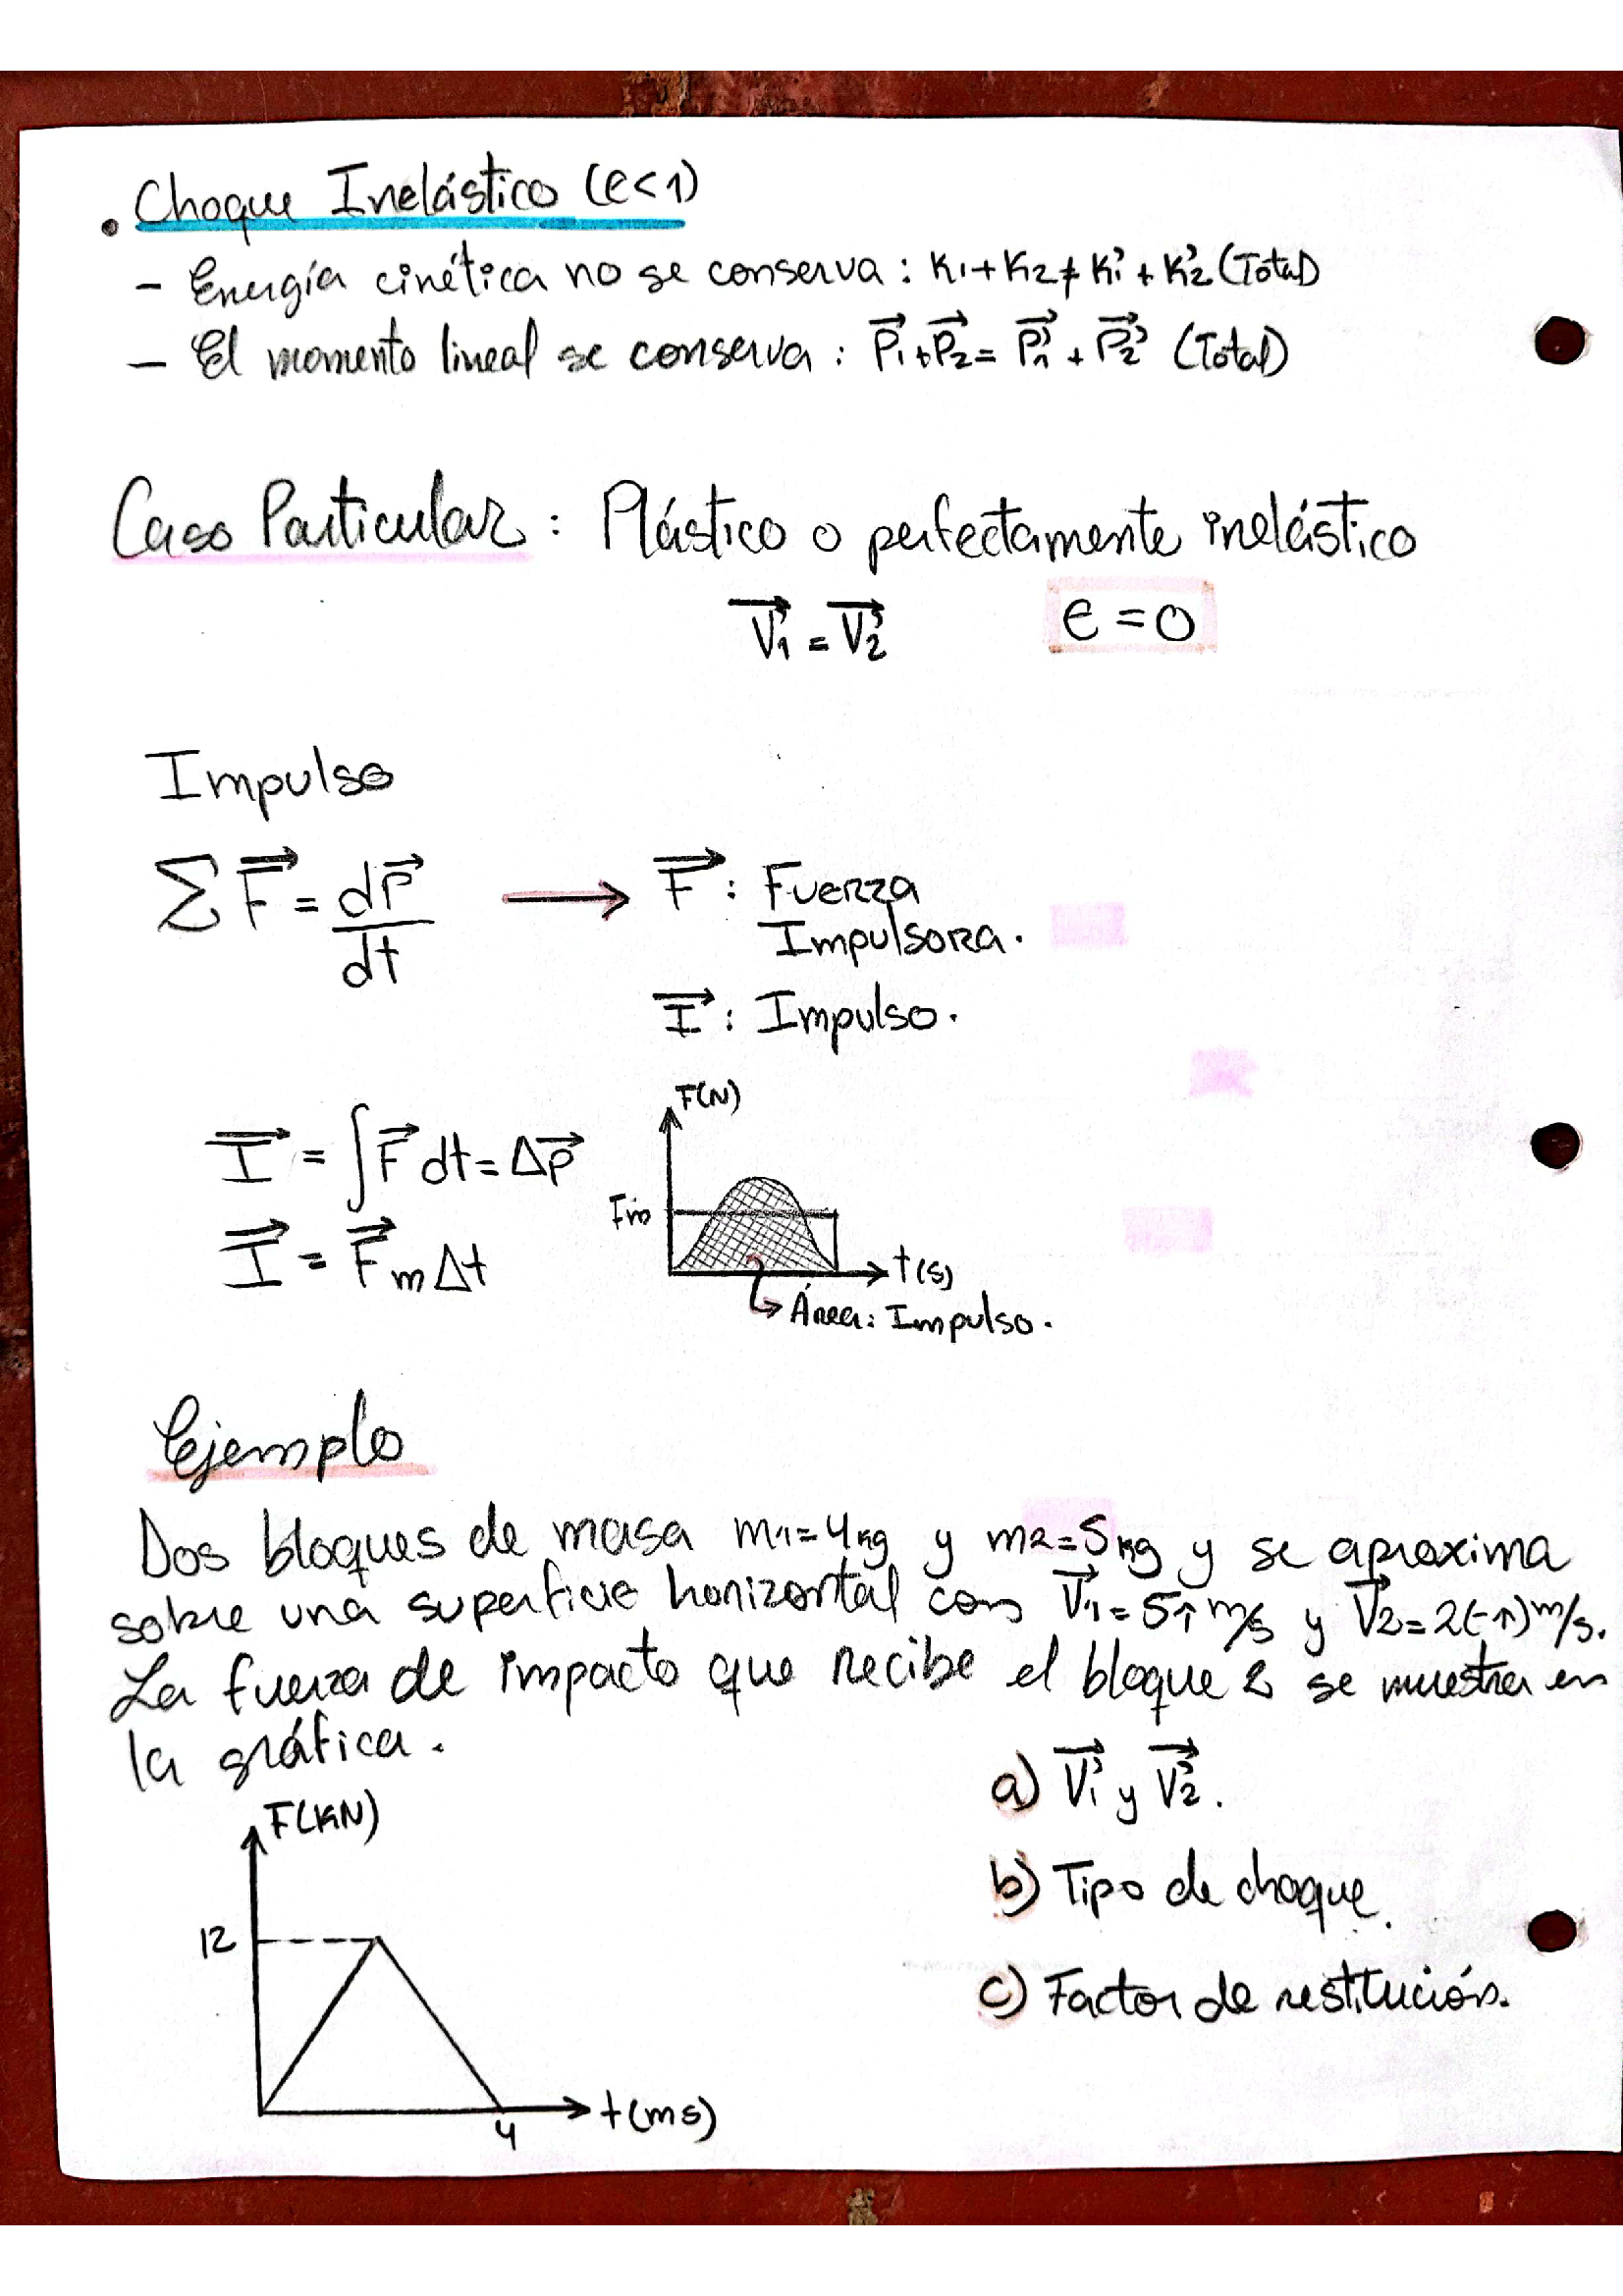 . Choque Inelástico (e<1)
- Energía cinética no se conserva : K₁+K₂≠K₁' + K₂' (Total)
- El momento lineal se conserva : P⃗₁+P⃗₂= P⃗₁' + P⃗₂' (Total)
Caso Particular : Plástico o perfectamente inelástico
V⃗₁' = V⃗₂' e = 0
Impulso
∑F⃗ = dp⃗/dt ⟶ F⃗ : Fuerza
Impulsora.
I⃗ : Impulso.
F(N)
I⃗ = ∫F⃗ dt = Δp⃗
Fm
I⃗ = F⃗m Δt
t(s)
Área: Impulso.
Ejemplo
Dos bloques de masa m₁=4kg y m₂=5kg y se aproxima
sobre una superficie horizontal con V⃗₁=5î m/s y V⃗₂=2(-î) m/s.
La fuerza de impacto que recibe el bloque 2 se muestra en
la gráfica.
a) V⃗₁' y V⃗₂'.
F(KN)
b) Tipo de choque.
12
c) Factor de restitución.
t(ms)
4